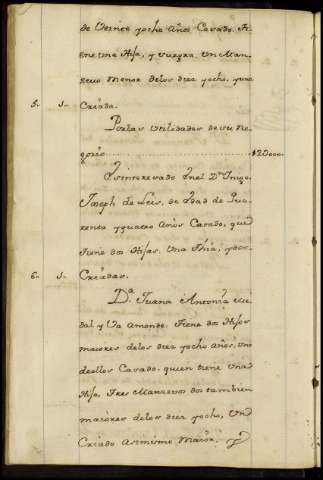 de Veinte y ocho años Casado. Ti-
ene una Hija, y suegra. Un Man-
zevo menor de los diez y ocho, y una
5. 1. Criada.
Por las Utilidades de su Ne-
gosio $20000.
Es interesado en el Dn.
Joseph de Leis, de Edad de Qua-
renta y quatro Años Casado, que
tiene dos Hijas. Una Thia, y dos
6. 1. Criadas.
Da. Juana Antonia
dal y Va amonde. Tiene dos Hijos
maiores de los diez y ocho años, uno
de ellos Casado, quien tiene Una
Hija. Tres Manzevos dos tambien
maiores de los diez y ocho, Un
Criado asimismo Maior. y